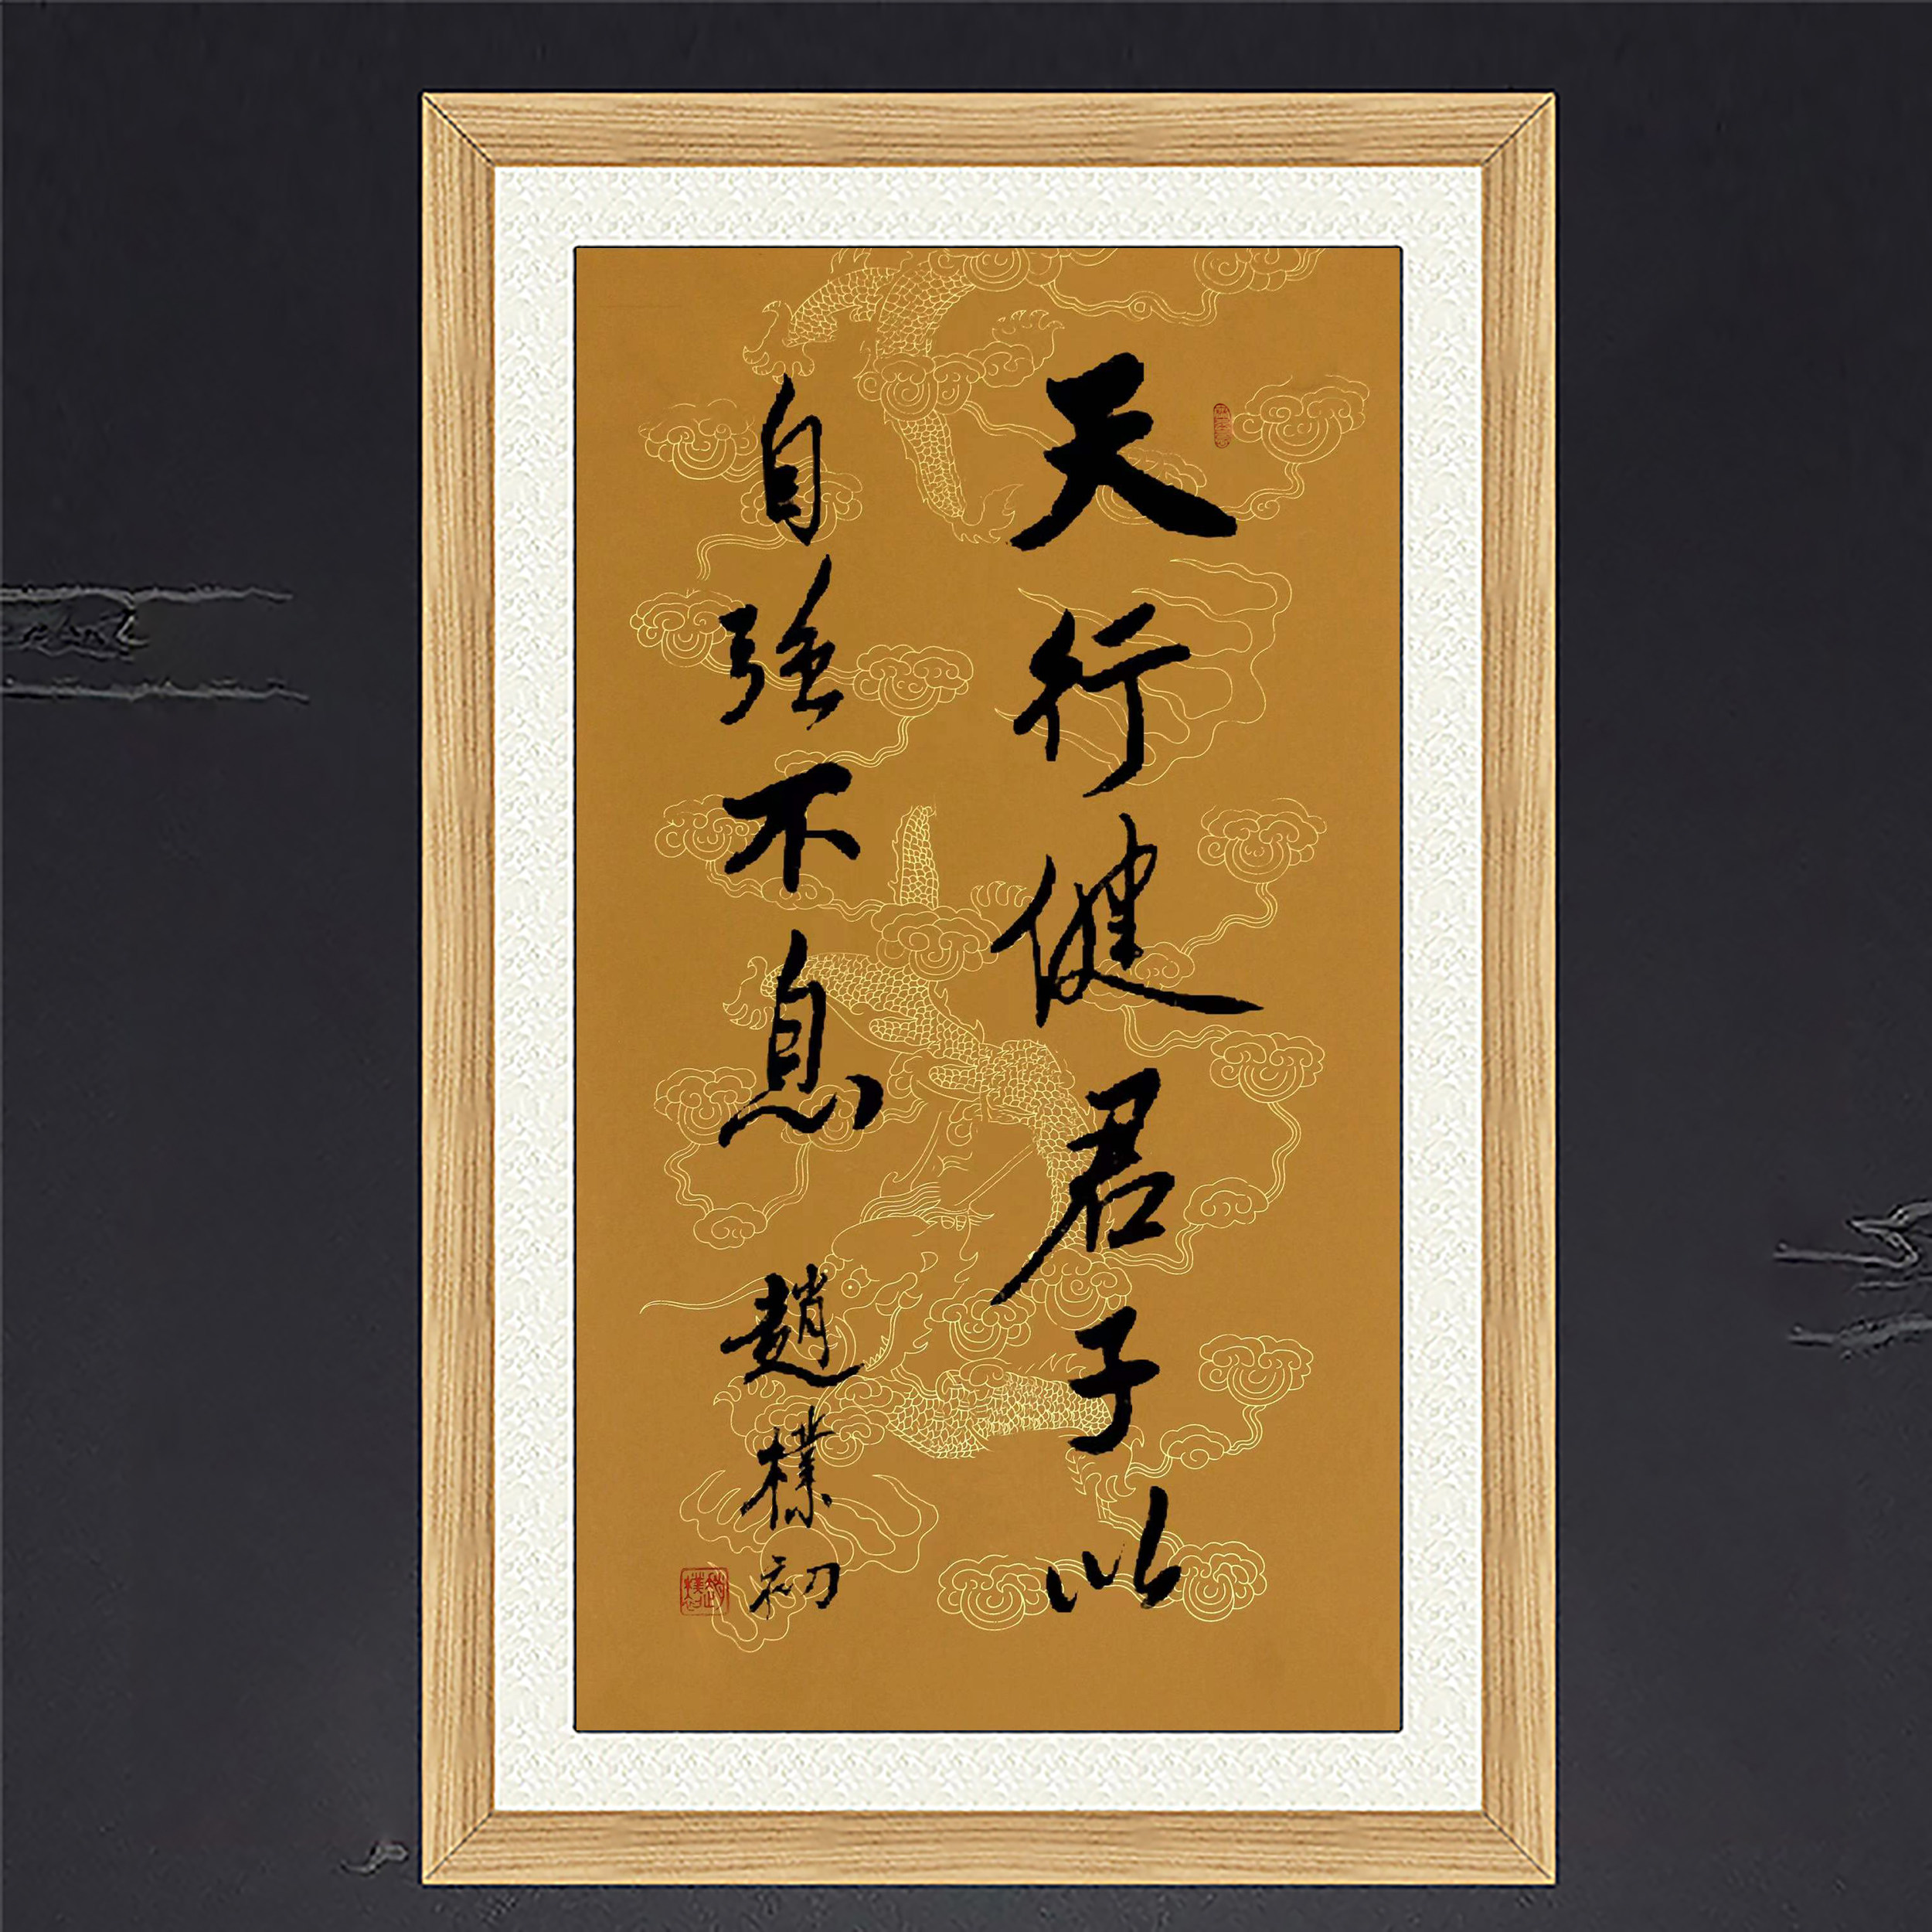 天行健君子以
自强不息
趙樸初